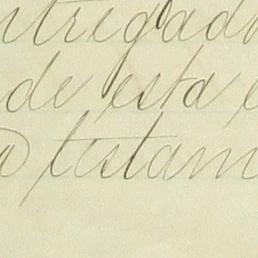 ntregad
de esta e
a testam